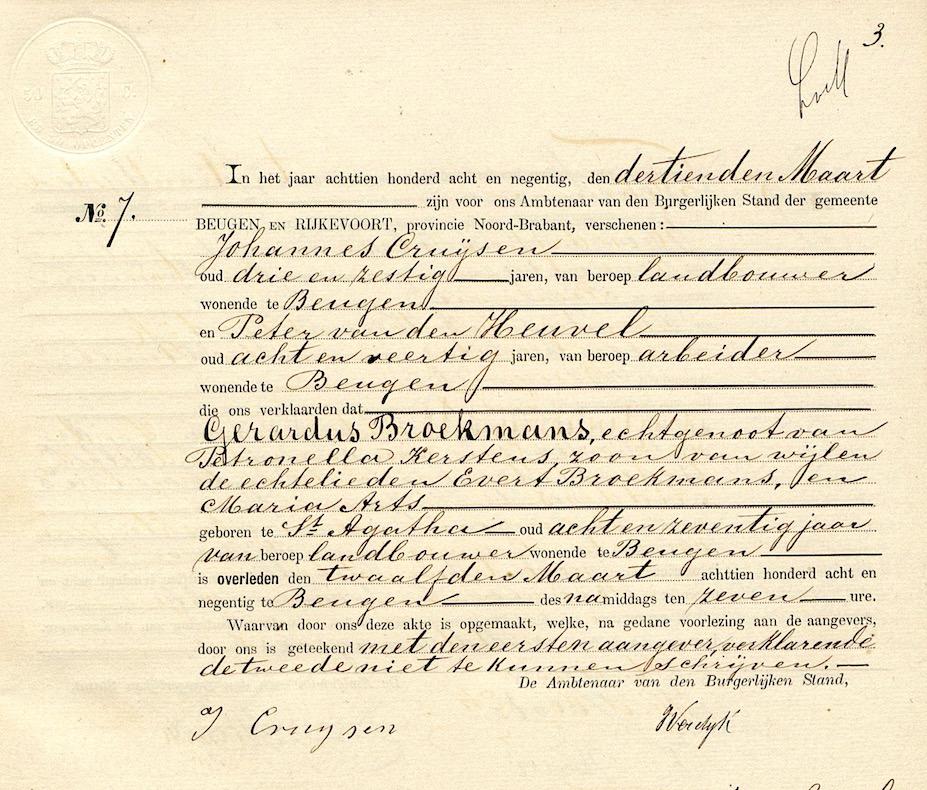 3.
In het jaar achttien honderd acht en negentig, den dertienden Maart
zijn voor ons Ambtenaar van den Burgerlijken Stand der gemeente
No. 7.
BEUGEN EN RIJKEVOORT, provincie Noord-Brabant, verschenen:
Johannes Cruijsen
oud drie en zestig jaren, van beroep landbouwer
wonende te Beugen
en Peter van den Heuvel
oud acht en veertig jaren, van beroep arbeider
wonende te Beugen
die ons verklaarden dat
Gerardus Broekmans, echtgenoot van
Petronella Kerstens, zoon van wijlen
de echtelieden Evert Broekmans, en
Maria Arts
geboren te St. Agatha oud acht en zeventig jaar
van beroep landbouwer wonende te Beugen
is overleden den twaalfden Maart achttien honderd acht en
negentig te Beugen des namiddags ten zeven ure.
Waarvan door ons deze akte is opgemaakt, welke, na gedane voorlezing aan de aangevers,
door ons is geteekend met den eersten aangever, verklarende
de tweede niet te kunnen schrijven.
De Ambtenaar van den Burgerlijken Stand,
J Cruysen